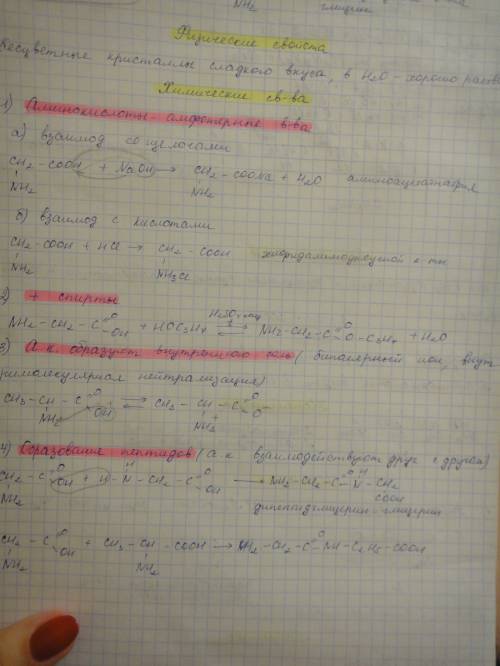 NH2 глицин
Физические свойста
Бесцветные кристаллы сладкого вкуса, в H2O - хорошо раство
Химические св-ва
1) Аминокислоты - амфотерные в-ва
а) взаимод со щелочами
CH2 - COOH + NaOH → CH2 - COONa + H2O аминоацетат натрия
NH2 NH2
б) взаимод с кислотами
CH2 - COOH + HCl → CH2 - COOH хлорид аминоуксусной к-ты
NH2 NH3Cl
2) + спирты
NH2 - CH2 - C O OH + HOC3H7 ⇄ H2SO4 NH2 - CH2 - C O O - C3H7 + H2O
3) А.к. образуют внутреннюю соль (биполярный ион, внут
римолекулярная нейтрализация)
CH3 - CH - C O OH ⇄ CH3 - CH - C O O-
NH2 NH3+
4) Образование пептидов (а.к взаимодействуют друг с другом)
CH2 - C O OH + H - N H - CH2 - C O OH → NH2 - CH2 - C O - N H - CH2
NH2 COOH
дипептид глицерин-глицерин
CH2 - C O OH + CH3 - CH - COOH → NH2 - CH2 - C O - NH - C2H4 - COOH
NH2 NH2